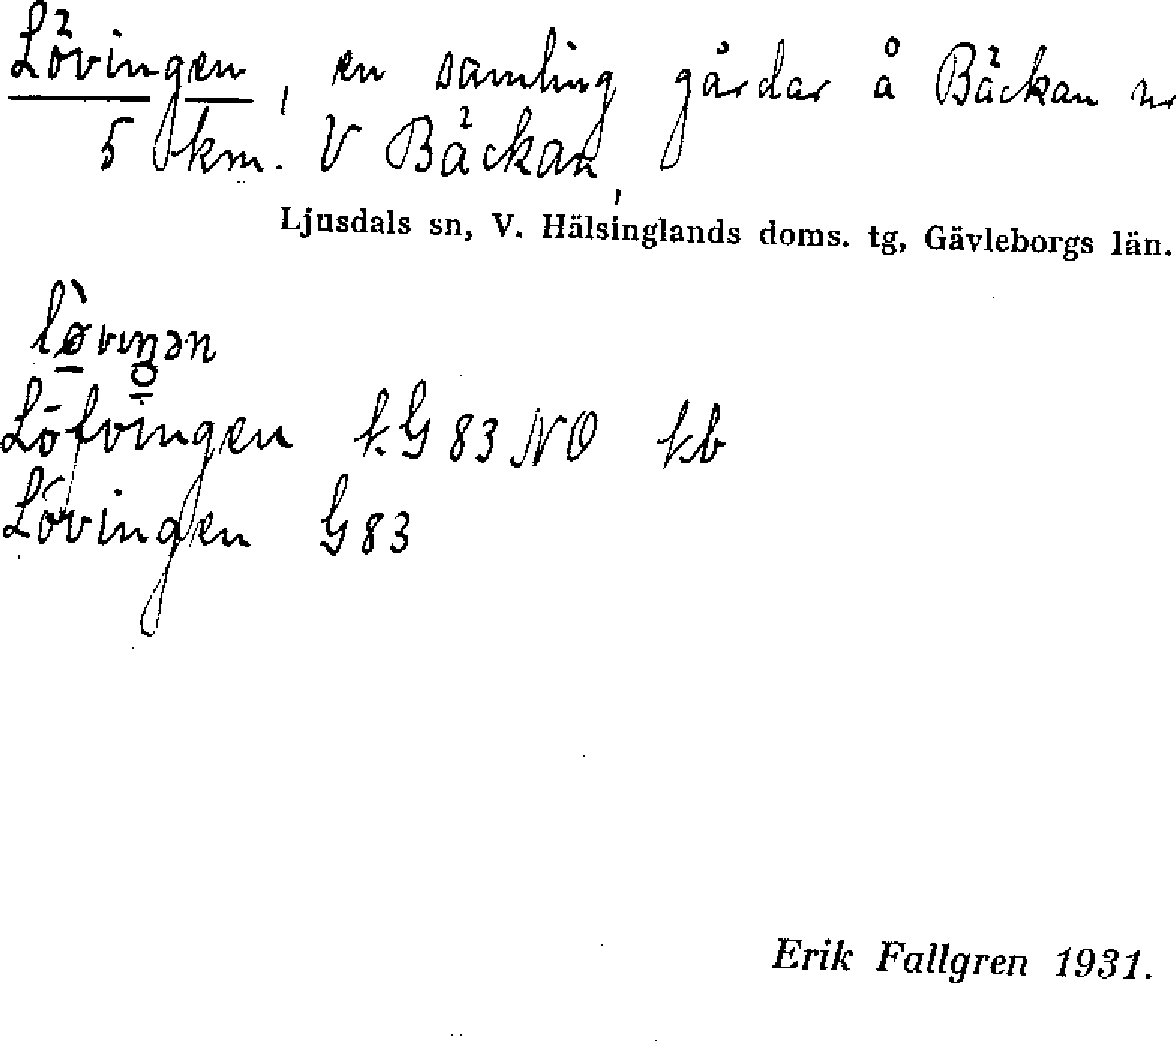 Lövingen, en samling gårdar å Bäckan nr
5 km. V Bäckan,
Ljusdals sn, V. Hälsinglands doms. tg, Gävleborgs län.
Löfvingen k. G 83 NO kb
Lövingen G 83
Erik Fallgren 1931.